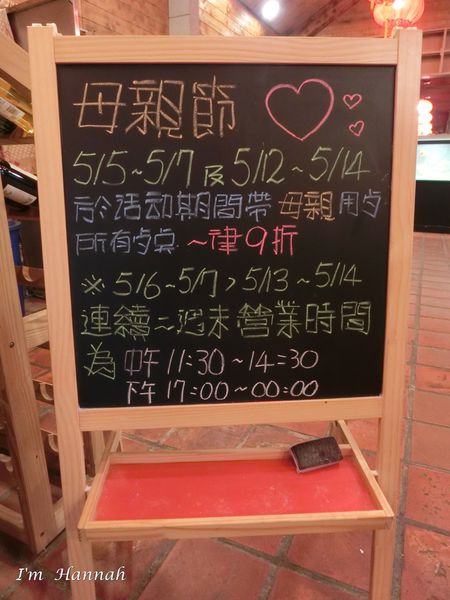 母親節
5/5~5/7及5/12~5/14
於活动期間帶母親用歺
所有歺点一律9折
※5/6~5/7,5/13~5/14
連續二週末營業時間
為中午11:30~14:30
下午17:00~00:00
I'm Hannah